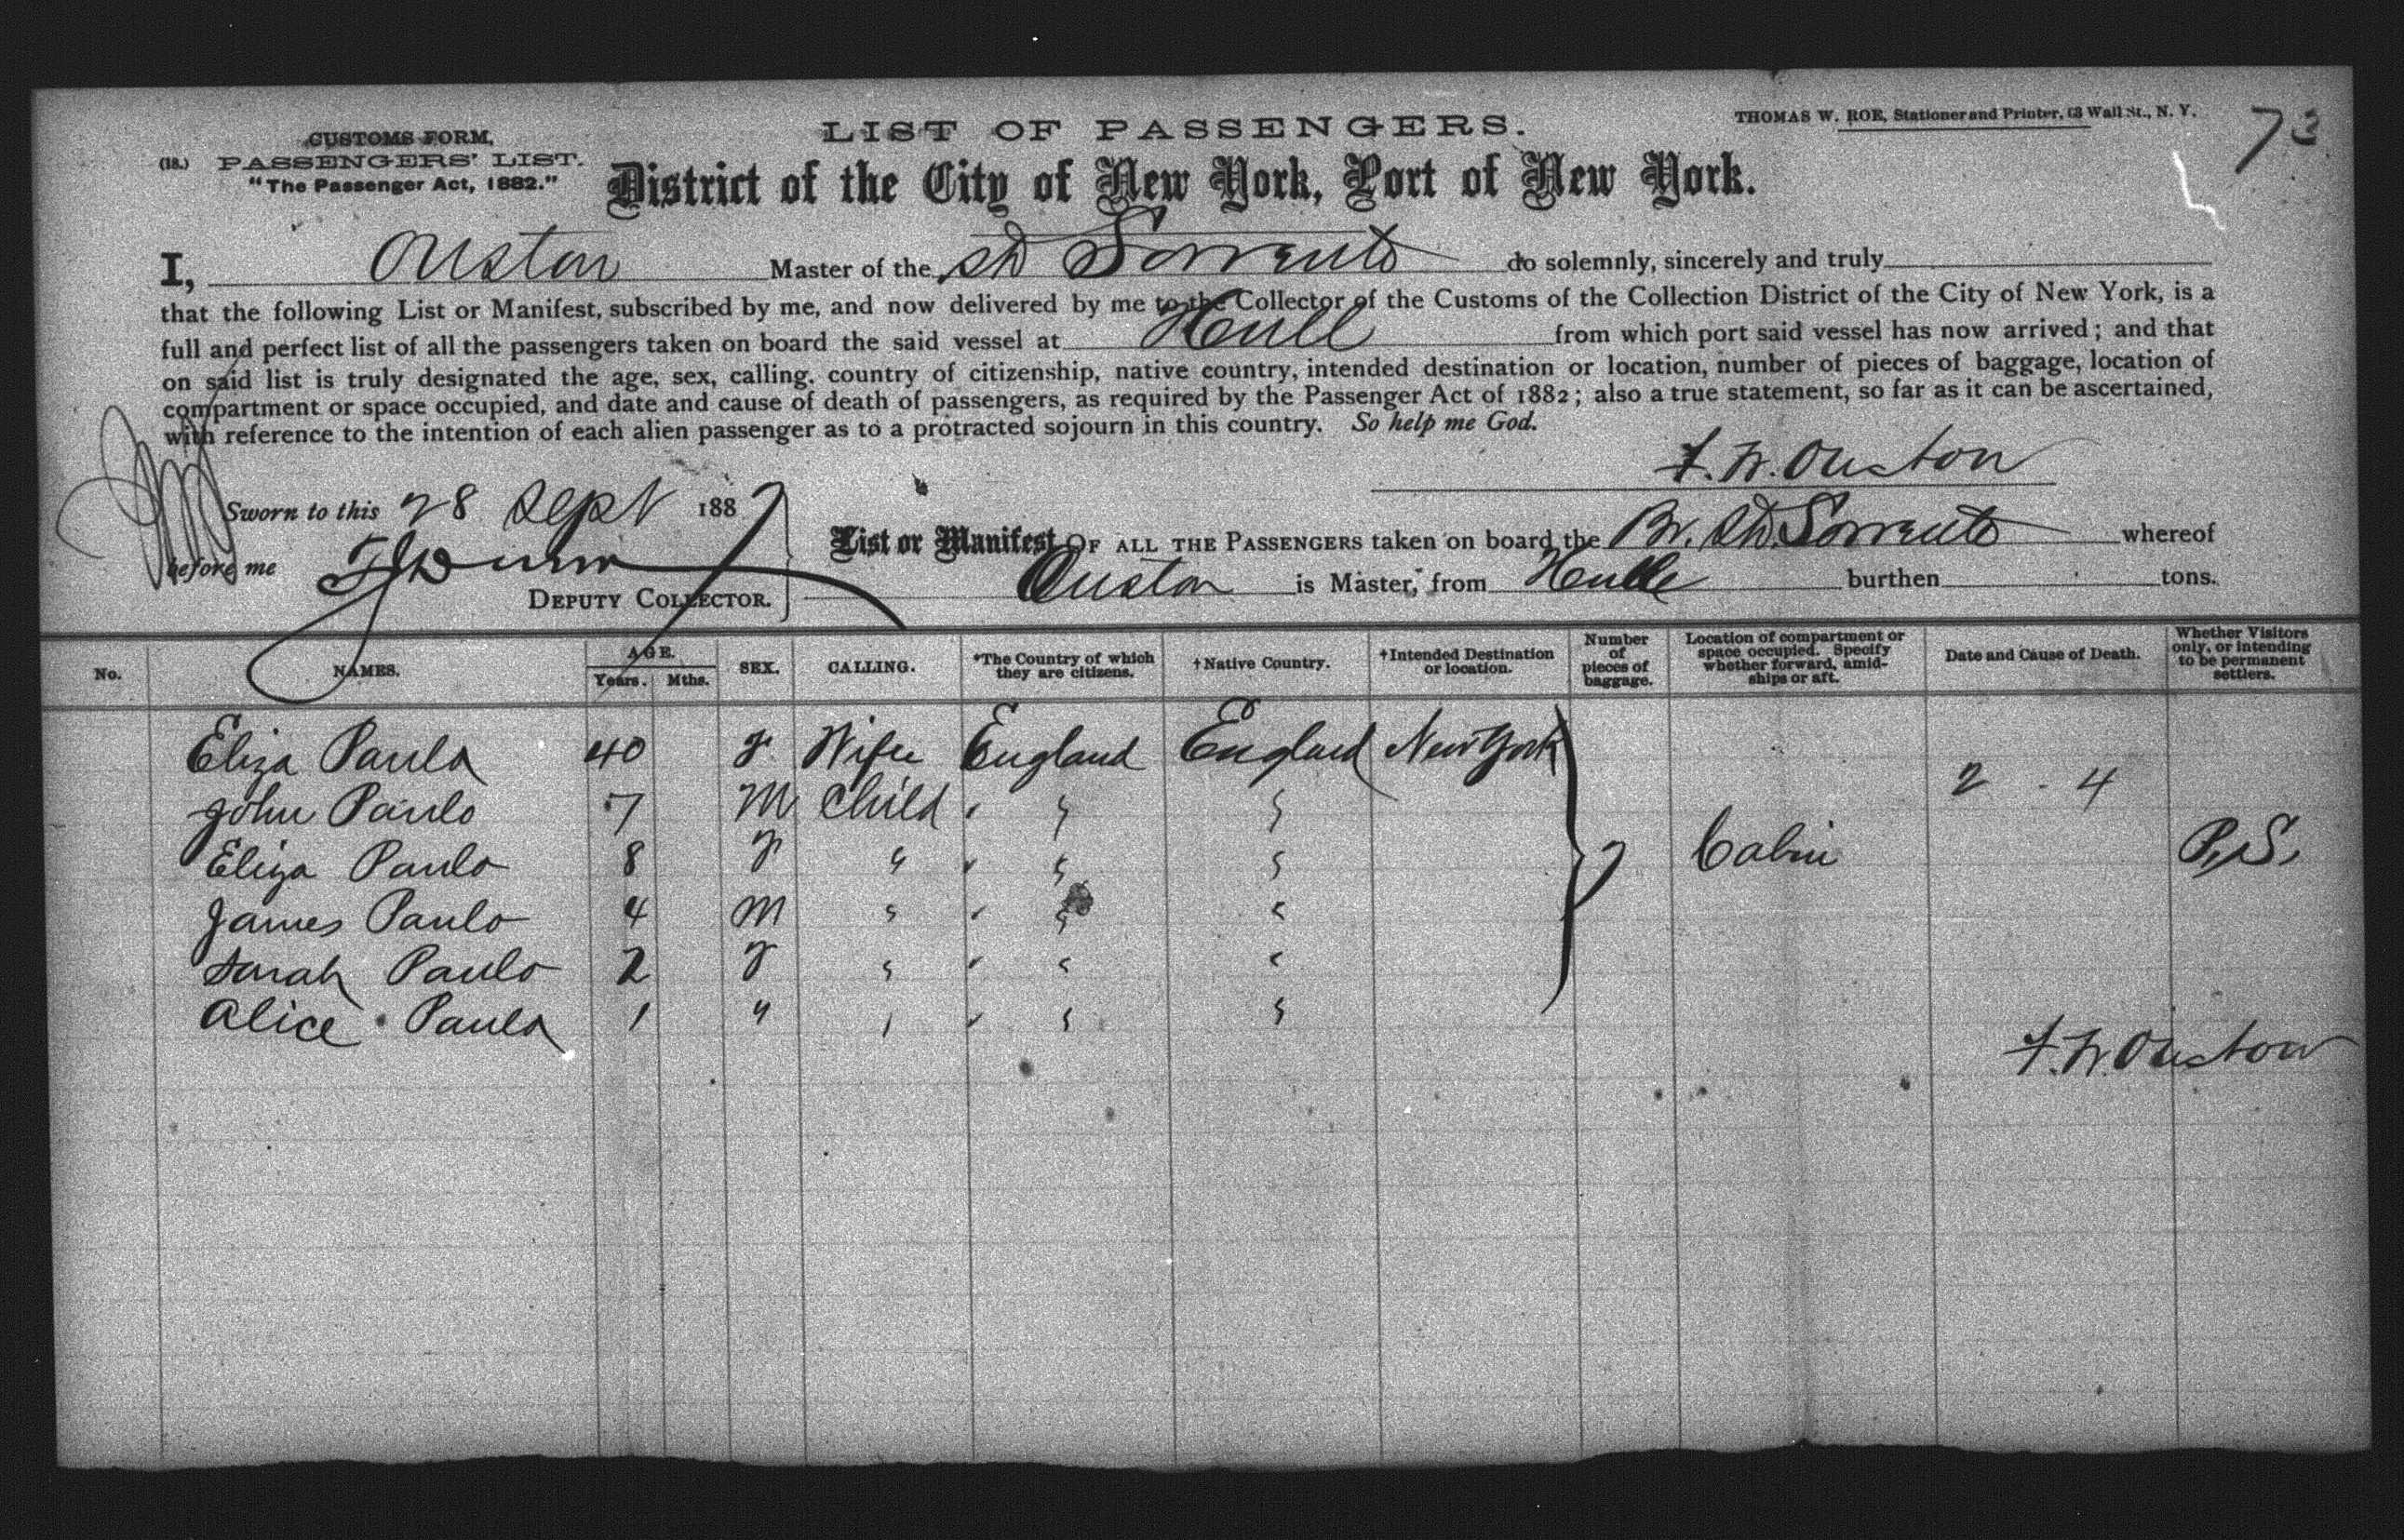 73
THOMAS W. ROE, Stationer and Printer, 63 Wall St., N. Y.
LIST OF PASSENGERS.
CUSTOMS FORM,
(18.) PASSENGERS' LIST.
"The Passenger Act, 1882."
District of the City of New York, Port of New York.
I, Ouston Master of the SS Sorrento do solemnly, sincerely and truly
that the following List or Manifest, subscribed by me, and now delivered by me to the Collector of the Customs of the Collection District of the City of New York, is a
full and perfect list of all the passengers taken on board the said vessel at Hull from which port said vessel has now arrived; and that
on said list is truly designated the age, sex, calling. country of citizenship, native country, intended destination or location, number of pieces of baggage, location of
compartment or space occupied, and date and cause of death of passengers, as required by the Passenger Act of 1882; also a true statement, so far as it can be ascertained,
with reference to the intention of each alien passenger as to a protracted sojourn in this country. So help me God.
F. W. Ouston
Sworn to this 28 Sept 1887
before me
DEPUTY COLLECTOR.
List or Manifest OF ALL THE PASSENGERS taken on board the Br. SS. Sorrento whereof
Ouston is Master, from Hull burthen tons.
No. NAMES. AGE. Years. Mths. SEX. CALLING. *The Country of which they are citizens. †Native Country. †Intended Destination or location. Number of pieces of baggage. Location of compartment or space occupied. Specify whether forward, amid-ships or aft. Date and Cause of Death. Whether Visitors only, or intending to be permanent settlers.
Eliza Paulo 40 F. Wife England England New York
2 - 4
John Paulo 7 M Child " " "
Eliza Paulo 8 F " " " " 7 Cabin P.S.
James Paulo 4 M " " " "
Sarah Paulo 2 F " " " "
Alice Paulo 1 " " " " "
F. W. Ouston